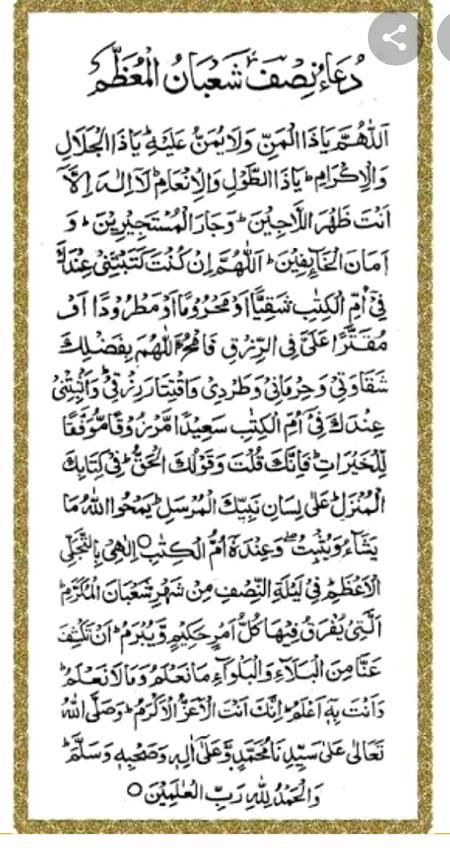 دُعَاءُ نِصْفِ شَعْبَانُ الْمُعَظَّمْ
اَللّٰهُمَّ يَا ذَا الْمَنِّ وَلَا يُمَنُّ عَلَيْهِ ؕ يَا ذَا الْجَلَالِ
وَالْاِكْرَامِ ؕ يَا ذَا الطَّوْلِ وَالْاِنْعَامِ ؕ لَآ اِلٰهَ اِلَّآ
اَنْتَ ظَهْرَ اللَّاجِيْنَ ؕ وَجَارَ الْمُسْتَجِيْرِيْنَ ؕ وَ
اَمَانَ الْخَآئِفِيْنَ ؕ اَللّٰهُمَّ اِنْ كُنْتَ كَتَبْتَنِيْ عِنْدَكَ
فِيْٓ اُمِّ الْكِتٰبِ شَقِيًّا اَوْ مَحْرُوْمًا اَوْ مَطْرُوْدًا اَوْ
مُقَتَّرًا عَلَيَّ فِي الرِّزْقِ فَامْحُ اللّٰهُمَّ بِفَضْلِكَ
شَقَاوَتِيْ وَحِرْمَانِيْ وَطَرْدِيْ وَاقْتِتَارَ رِزْقِيْ ؕ وَاَثْبِتْنِيْ
عِنْدَكَ فِيْٓ اُمِّ الْكِتٰبِ سَعِيْدًا مَّرْزُوْقًا مُّوَفَّقًا
لِّلْخَيْرَاتِ ؕ فَاِنَّكَ قُلْتَ وَقَوْلُكَ الْحَقُّ ؕ فِيْ كِتَابِكَ
الْمُنَزَّلِ ؕ عَلٰى لِسَانِ نَبِيِّكَ الْمُرْسَلِ ؕ يَمْحُوا اللّٰهُ مَا
يَشَآءُ وَيُثْبِتُ ۖ وَعِنْدَهٗٓ اُمُّ الْكِتٰبِ ○ اِلٰهِيْ بِالتَّجَلِّي
الْاَعْظَمِ ؕ فِيْ لَيْلَةِ النِّصْفِ مِنْ شَهْرِ شَعْبَانَ الْمُكَرَّمِ ؕ
الَّتِيْ يُفْرَقُ فِيْهَا كُلُّ اَمْرٍ حَكِيْمٍ وَّيُبْرَمُ ؕ اَنْ تَكْشِفَ
عَنَّا مِنَ الْبَلَآءِ وَالْبَلْوَآءِ مَا نَعْلَمُ وَمَا لَا نَعْلَمُ ؕ
وَاَنْتَ بِهٖٓ اَعْلَمُ ؕ اِنَّكَ اَنْتَ الْاَعَزُّ الْاَكْرَمُ ؕ وَصَلَّى اللّٰهُ
تَعَالٰى عَلٰى سَيِّدِنَا مُحَمَّدٍ وَّعَلٰٓى اٰلِهٖ وَصَحْبِهٖ وَسَلَّمَ ؕ
وَالْحَمْدُ لِلّٰهِ رَبِّ الْعٰلَمِيْنَ ○